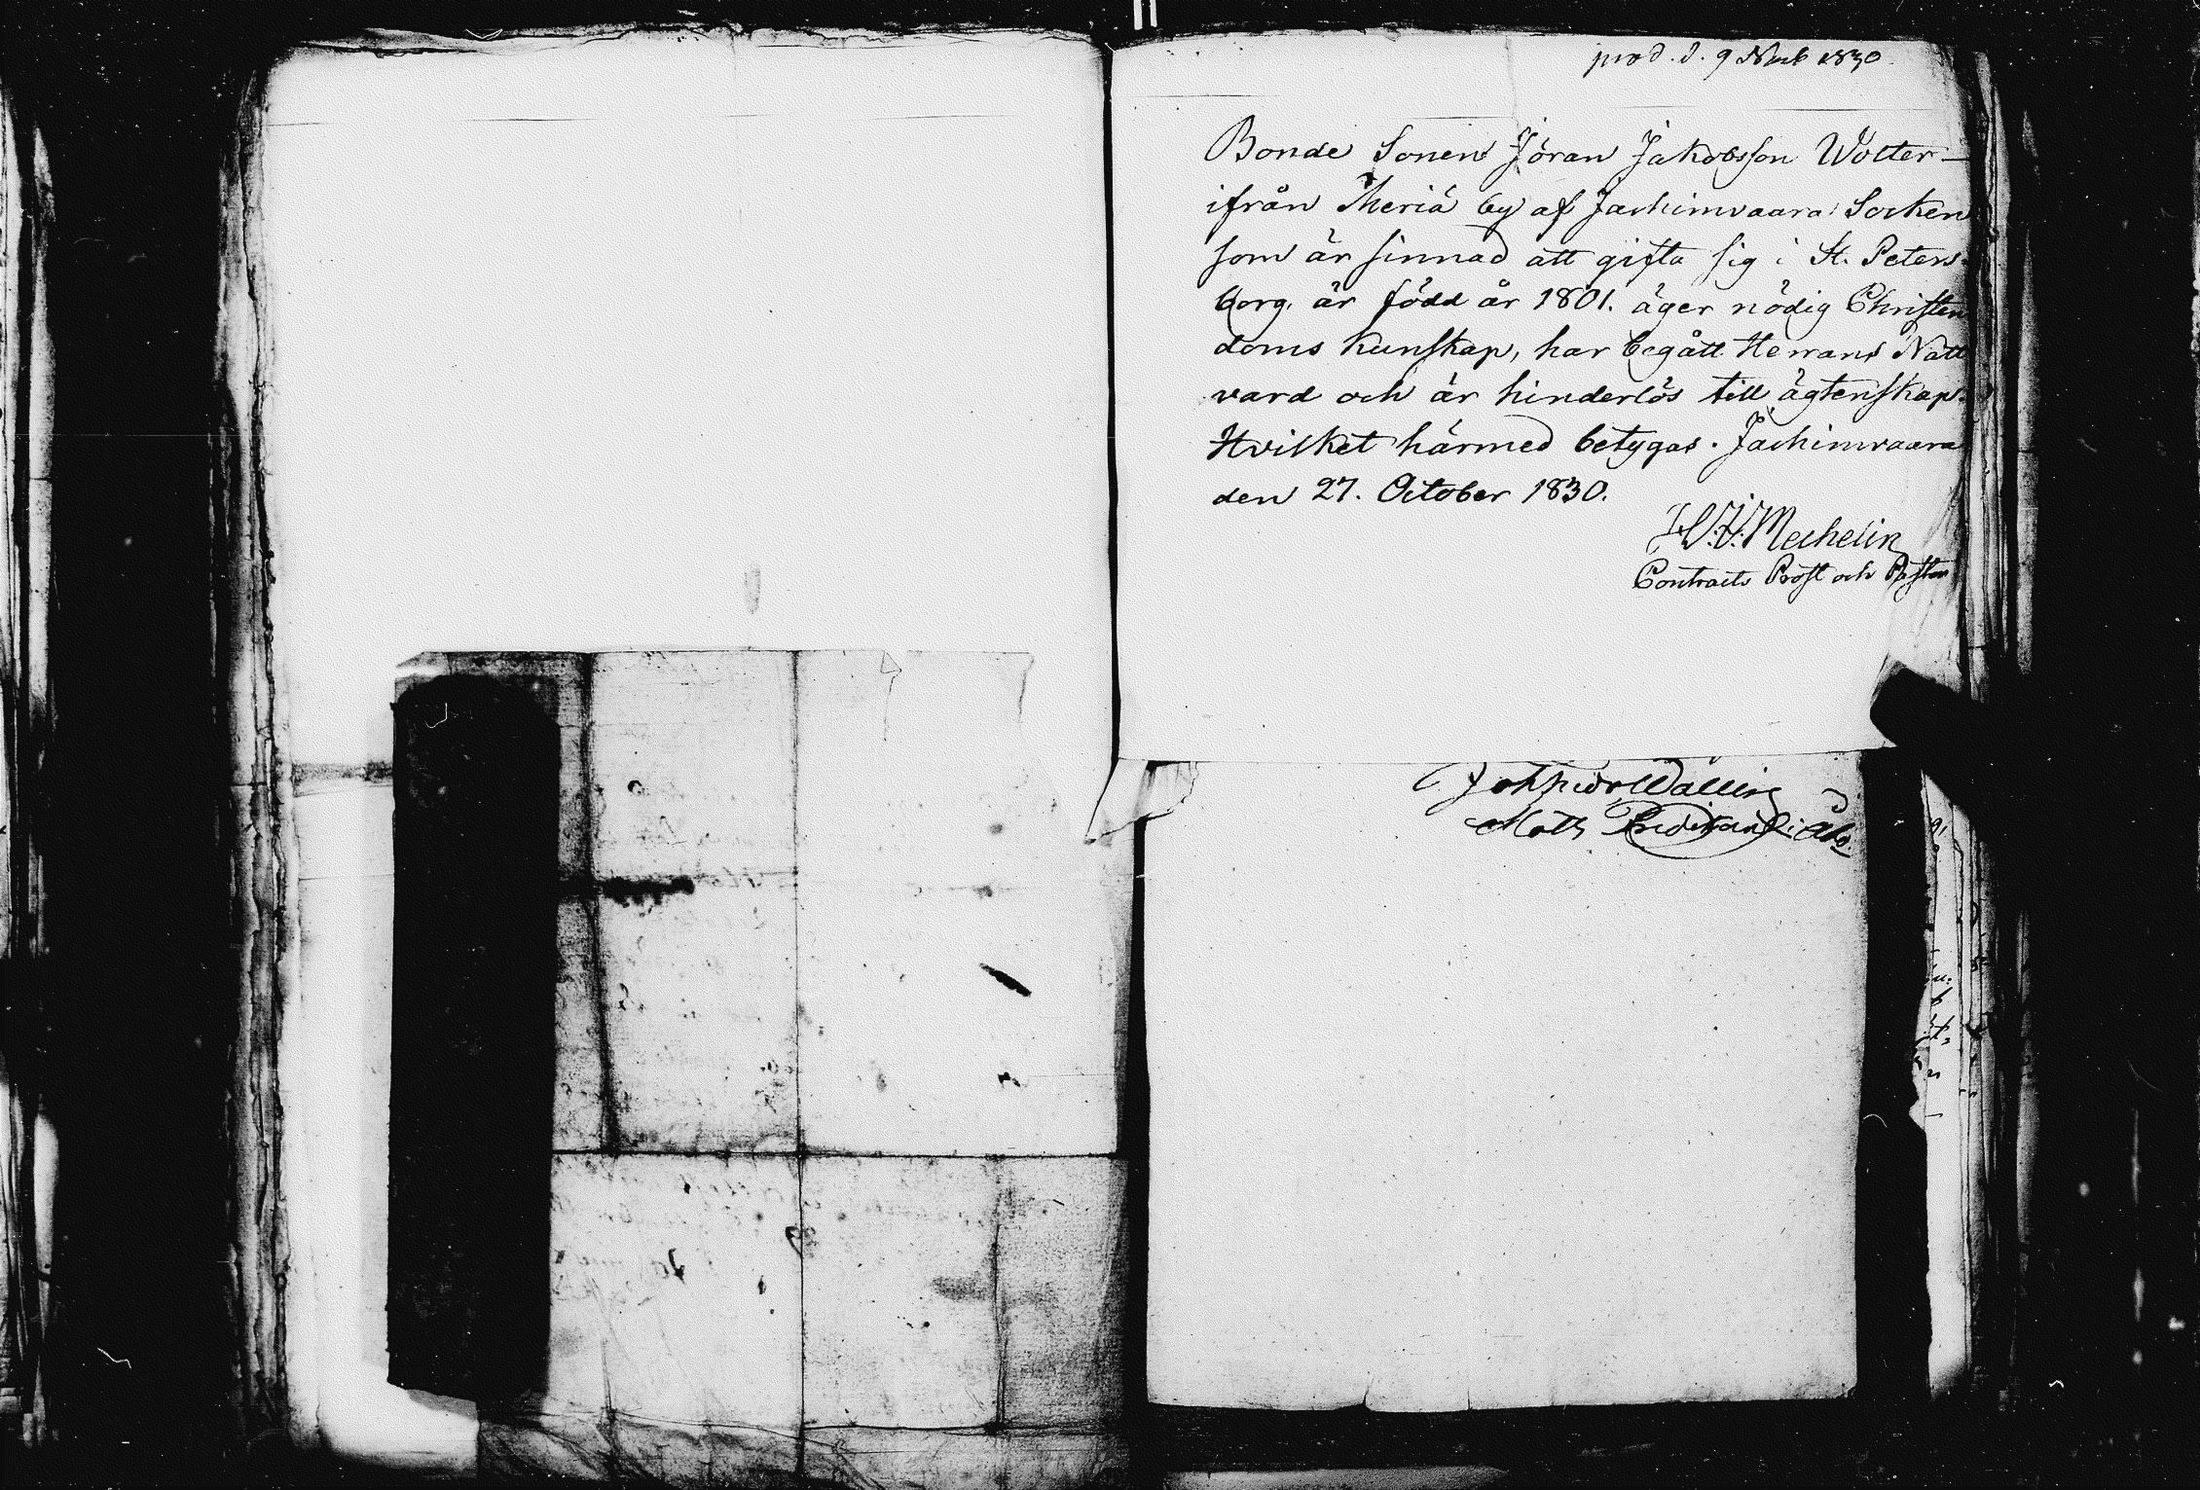 prod. d. 9 Novb 1830.
Bonde Sonen Jöran Jakobsson Wotter-
ifrån Meriä by af Jachimvaara Socken
som är sinnad att gifta sig i St. Peters-
borg, är född år 1801. äger nödig Christen
doms kunskap, har begått Herrans Natt
vard och är hinderlös till ägtenskap.
Hvilket härmed betygas. Jachimvaara
den 27. October 1830.
Mechelin
Contracts Prost och Pastor
Wallin
Math i Åbo.